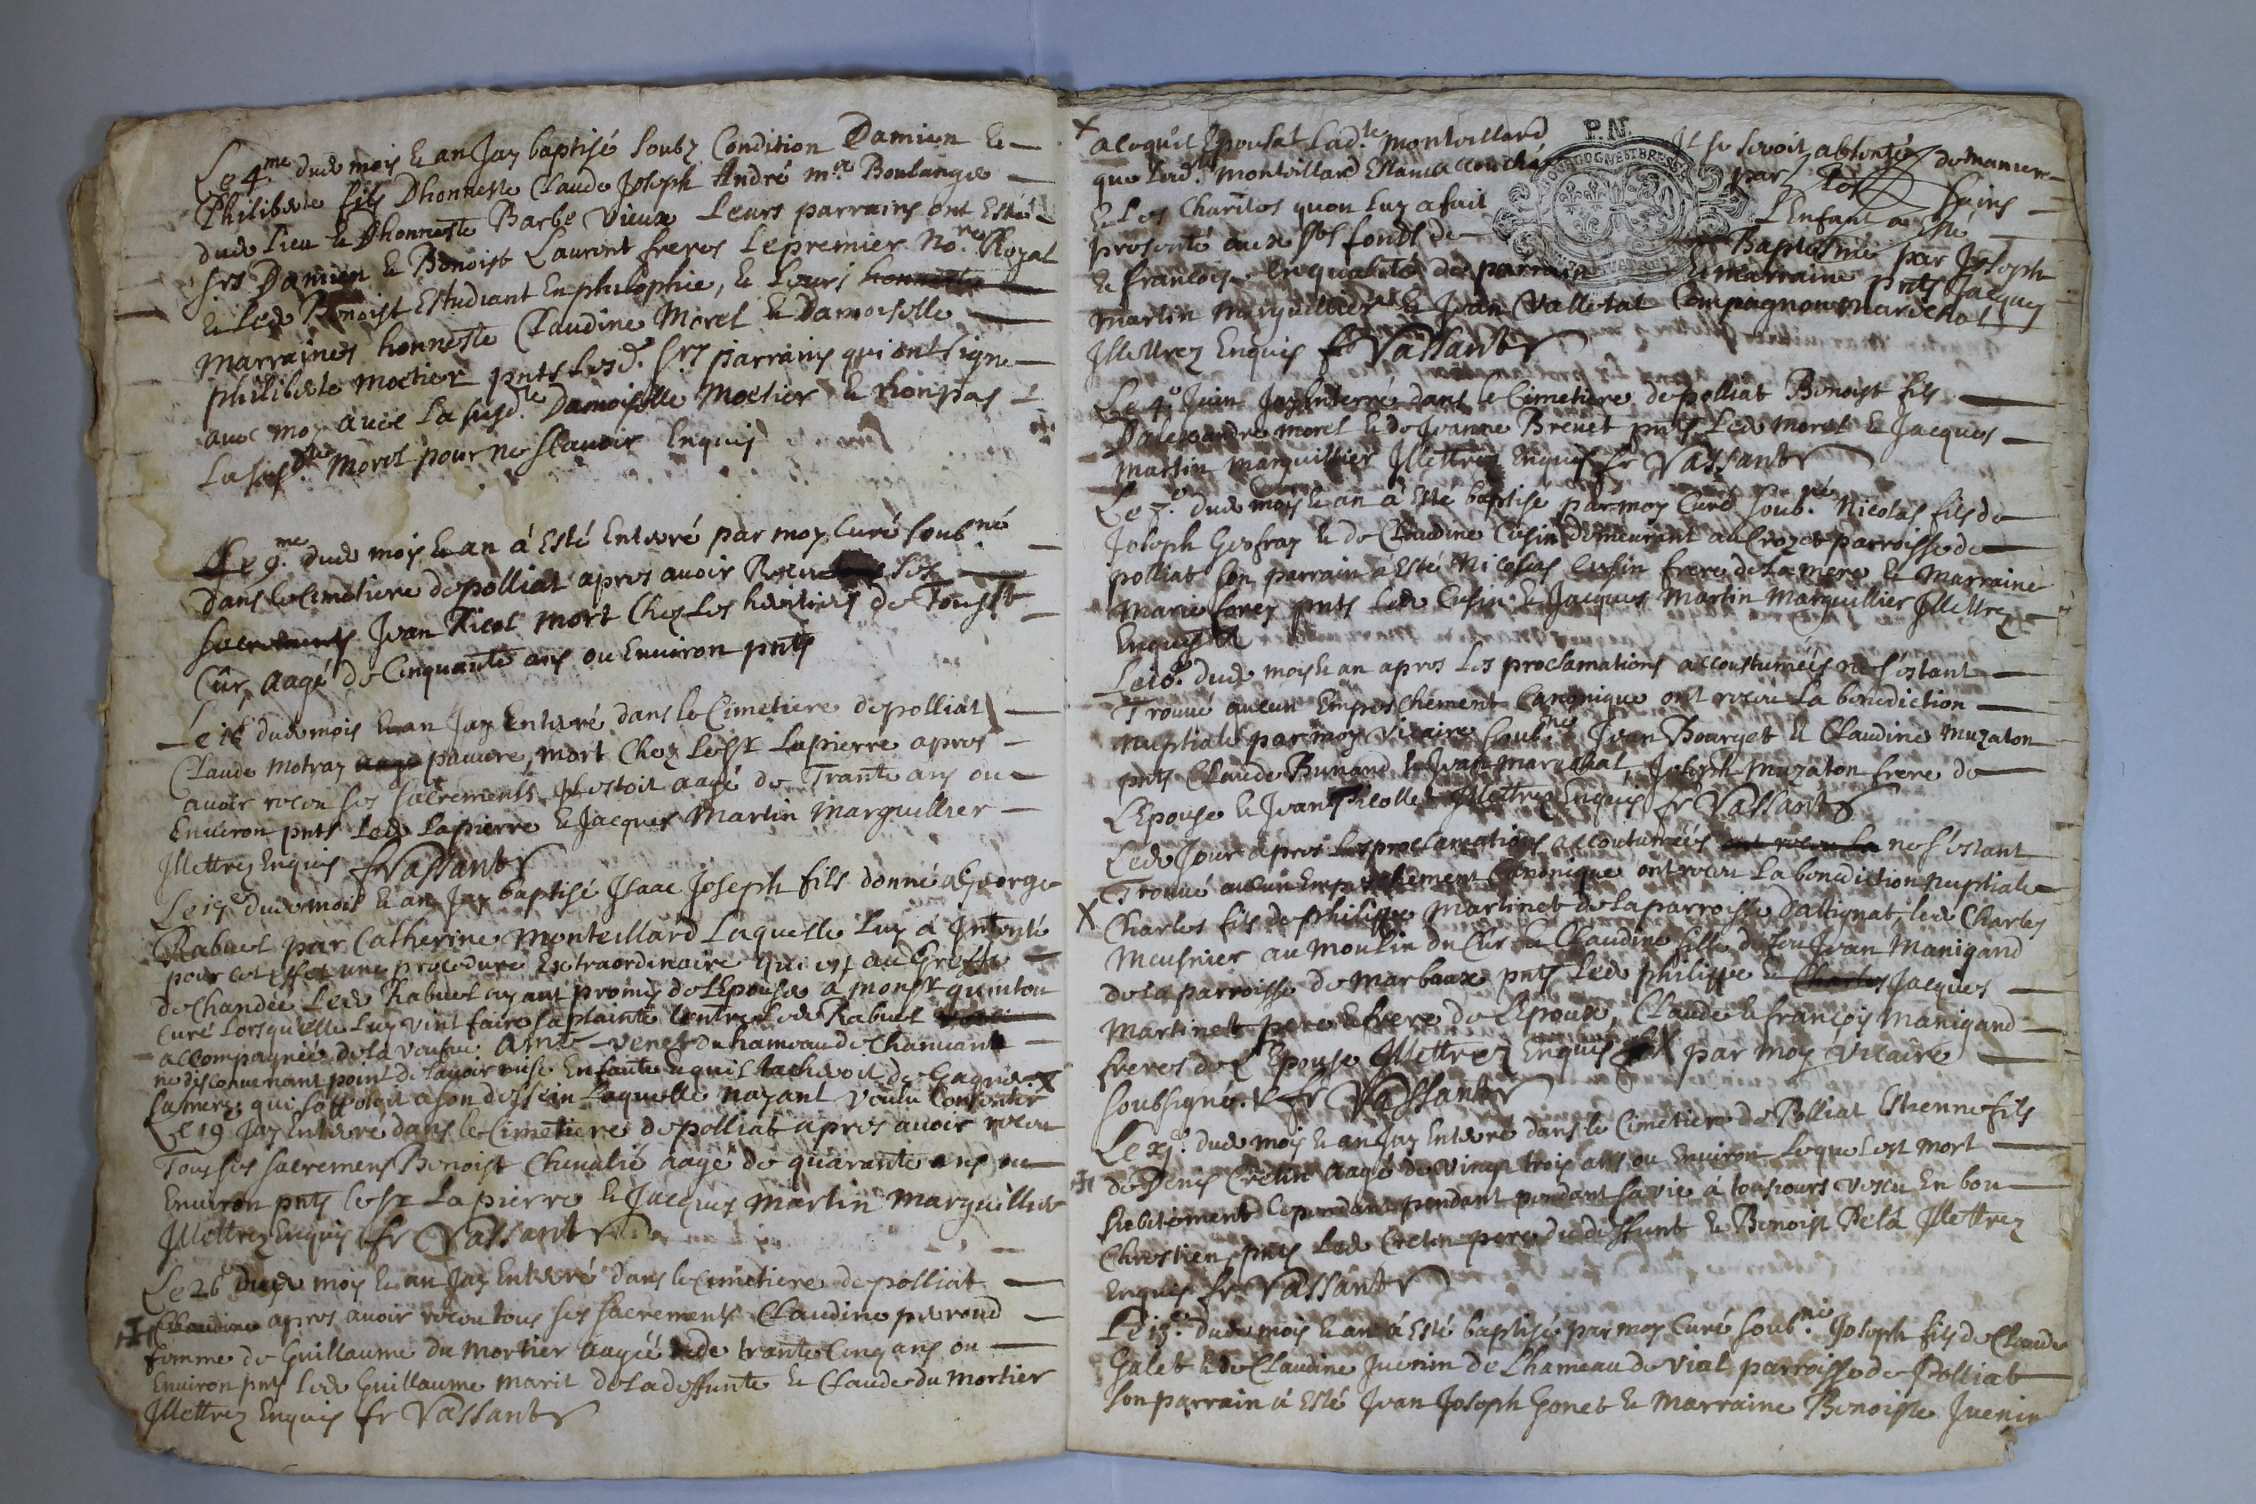 Le 4.me dud mois & an Jay baptisé soubz Condition Damien &
Philiberte fils Dhonneste Claude Joseph André m.e Boulanger
dud Lieu & Dhonneste Barbe Vieux Leurs parrains ont Esté
Srs Damien & Benoist Laurent freres Le premier No.re Royal
& Led Benoist Estudiant En philophie, & Leurs
Marraines honneste Claudine Morel & Damoiselle
philiberte Moetier pnts Lesd. Srs parrains qui ont signe
avec moy avec La susd.te Damoiselle Moetier & non pas
La susd.te Morel pour ne scavoir Enquis
Le 9.me dud mois & an á Esté Enterré par moy Curé soub.né
dans le Cimetiere de polliat apres avoir Receu ses
sacrements Jean Nicol mort Chez Les heritiers de Tousst
Cûr, aagé de Cinquante ans ou Environ pnts
Le 16 dud mois & an Jay Enterré dans le Cimetiere de polliat
Claude motray pauvre, mort Chez Le Sr Lapierre apres
avoir receu ses sacrements Il estoit aagé de Trante ans ou
Environ pnts Led Lapierre & Jacques Martin Marguillier
Illettrez Enquis fr Vassant
Le 17 dud mois & an Jay baptisé Isaac Joseph fils donné a George
Rabuel par Catherine Monteillard Laquelle Luy á Intenté
pour cet Effet une procedure Extraordinaire qui est au Greffe
de Chandée Led Rabuel ayant promis de LEpouser a Monsr quinton
Curé Lorsquelle Luy vint faire sa plainte Contre Led Rabuel
accompagnée de la veufue du hameau de Chanuant
ne disconvenant point de Lavoir mise Enfante & quil tacheroit de Gagner X
sa mere qui sopposoit a son dessein Laquelle nayant voulu Consentir
Le 19 Jay Enterré dans le Cimetiere de polliat apres avoir receu
Tous ses sacremens Benoist Chevalié aagé de quarante ans ou
Environ pnts le Sr Lapierre & Jacques Martin Marguillier
Illettrez Enquis fr Vassant
Le 26 dud mois & an Jay Enterré dans le Cimetiere de polliat
Claudine apres avoir receu tous ses sacrements Claudine peroud
femme de Guillaume du Mortier aagée de trante Cinq ans ou
Environ pnts Led Guillaume marit de la deffunte & Claude du Mortier
Illettrez Enquis fr Vassant
X
a ce quil Epousat Lad.te Monteillard Il se seroit absenté de maniere
que Lad.te Monteillard Estant accouchée par
& Les Charités quon Luy a fait LEnfant a Esté
presenté aux Sts fonds de Baptesme par Joseph
& francois En qualité de parrain & Marraine pnts Jacques
Martin Marguillier & Jean Valletat Compagnon Marechal
Illettrez Enquis fr Vassant
P.N.
BOURGOGNE ET BRESSE
Le 4.e Juin Jay Enterré dans le Cimetiere de polliat Benoist fils
Dalexandre Morel & de Jeanne Brevet pnts Led Morel & Jacques
Martin Marguillier Illettrez Enquis fr Vassant
Le 7.e dud mois & an á Esté baptisé par moy Curé soub.né Nicolas fils de
Joseph Geofray & de Claudine Cusin demeurant au Crozet parroisse de
polliat son parrain á Esté Nicolas Cusin frere de La mere & Marraine
Marie Sorez pnts Led Cusin & Jacques Martin Marguillier Illettrez
Enquis
Le 10.e dud mois & an apres Les proclamations accoustumées ne sestant
Trouvé aucun Empeschement Canonique ont receu La benediction
nuptiale par moy Vicaire soub.né Jean Bourget & Claudine Muzaton
pnts Claude Bunand & Jean Marechal, Joseph Muzaton frere de
LEpouse & Jean Picollet Illettrez Enquis fr Vassant
Led Jour apres Les proclamations accoutumées ont receu La ne sestant
Trouvé aucun Empeschement Canonique ont receu La benediction nuptiale
X Charles fils de philippe Martinet de la parroisse Dattignat, led Charles
Meusnier au Moulin du Cur & Claudine fille de feu Jean Manigand
de la parroisse de Marbaux pnts Led philippe & Charles Jacques
Martinet pere & frere de LEpoux, Claude & françois Manigand
freres de LEpouse Illettrez Enquis par moy Vicaire
soubsigné. fr Vassant
Le xj.e dud mois & an Jay Enterré dans le Cimetiere de Polliat Estienne fils
de Denis Cretin aagé de vingt trois ans ou Environ Lequel est mort
subitement Cependant pendant sa vie á tousiours vescu En bon
Chrestien pnts Led Cretin pere du deffunt & Benoist Pela Illettrez
Enquis fr Vassant
Le 13.e dud mois & an á Esté baptisé par moy Curé soub.né Joseph fils de Claude
Galet & de Claudine Juenin de Lhameau de Vial parroisse de Polliat
son parrain á Esté Jean Joseph Gonet & Marraine Benoiste Juenin